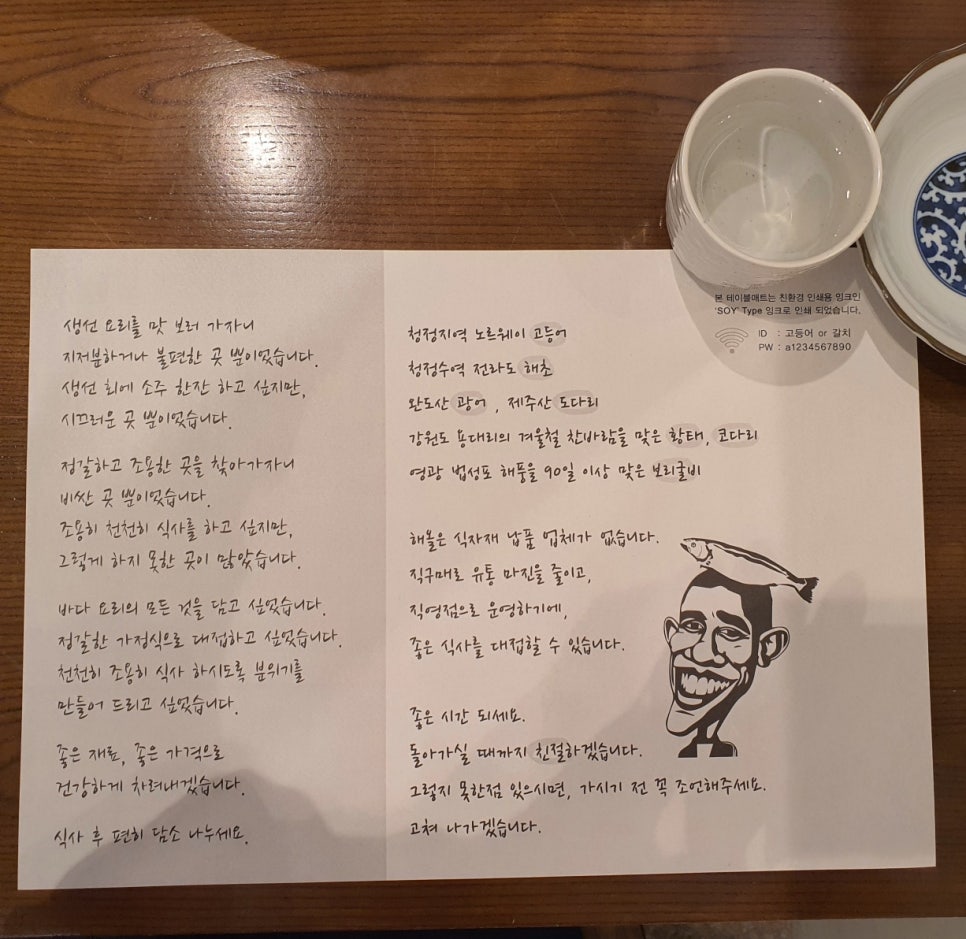 생선 요리를 맛 보러 가자니
지저분하거나 불편한 곳 뿐이었습니다.
생선 회에 소주 한잔 하고 싶지만,
시끄러운 곳 뿐이었습니다.
정갈하고 조용한 곳을 찾아가자니
비싼 곳 뿐이었습니다.
조용히 천천히 식사를 하고 싶지만,
그렇게 하지 못한 곳이 많았습니다.
바다 요리의 모든 것을 담고 싶었습니다.
정갈한 가정식으로 대접하고 싶었습니다.
천천히 조용히 식사 하시도록 분위기를
만들어 드리고 싶었습니다.
좋은 재료, 좋은 가격으로
건강하게 차려내겠습니다.
식사 후 편히 담소 나누세요.
본 테이블매트는 친환경 인쇄용 잉크인
'SOY' Type 잉크로 인쇄 되었습니다.
ID : 고등어 or 갈치
PW : a1234567890
청정지역 노르웨이 고등어
청정수역 전라도 해초
완도산 광어, 제주산 도다리
강원도 용대리의 겨울철 찬바람을 맞은 황태, 코다리
영광 법성포 해풍을 90일 이상 맞은 보리굴비
해올은 식자재 납품 업체가 없습니다.
직구매로 유통 마진을 줄이고,
직영점으로 운영하기에,
좋은 식사를 대접할 수 있습니다.
좋은 시간 되세요.
돌아가실 때까지 친절하겠습니다.
그렇지 못한점 있으시면, 가시기 전 꼭 조언해주세요.
고쳐 나가겠습니다.